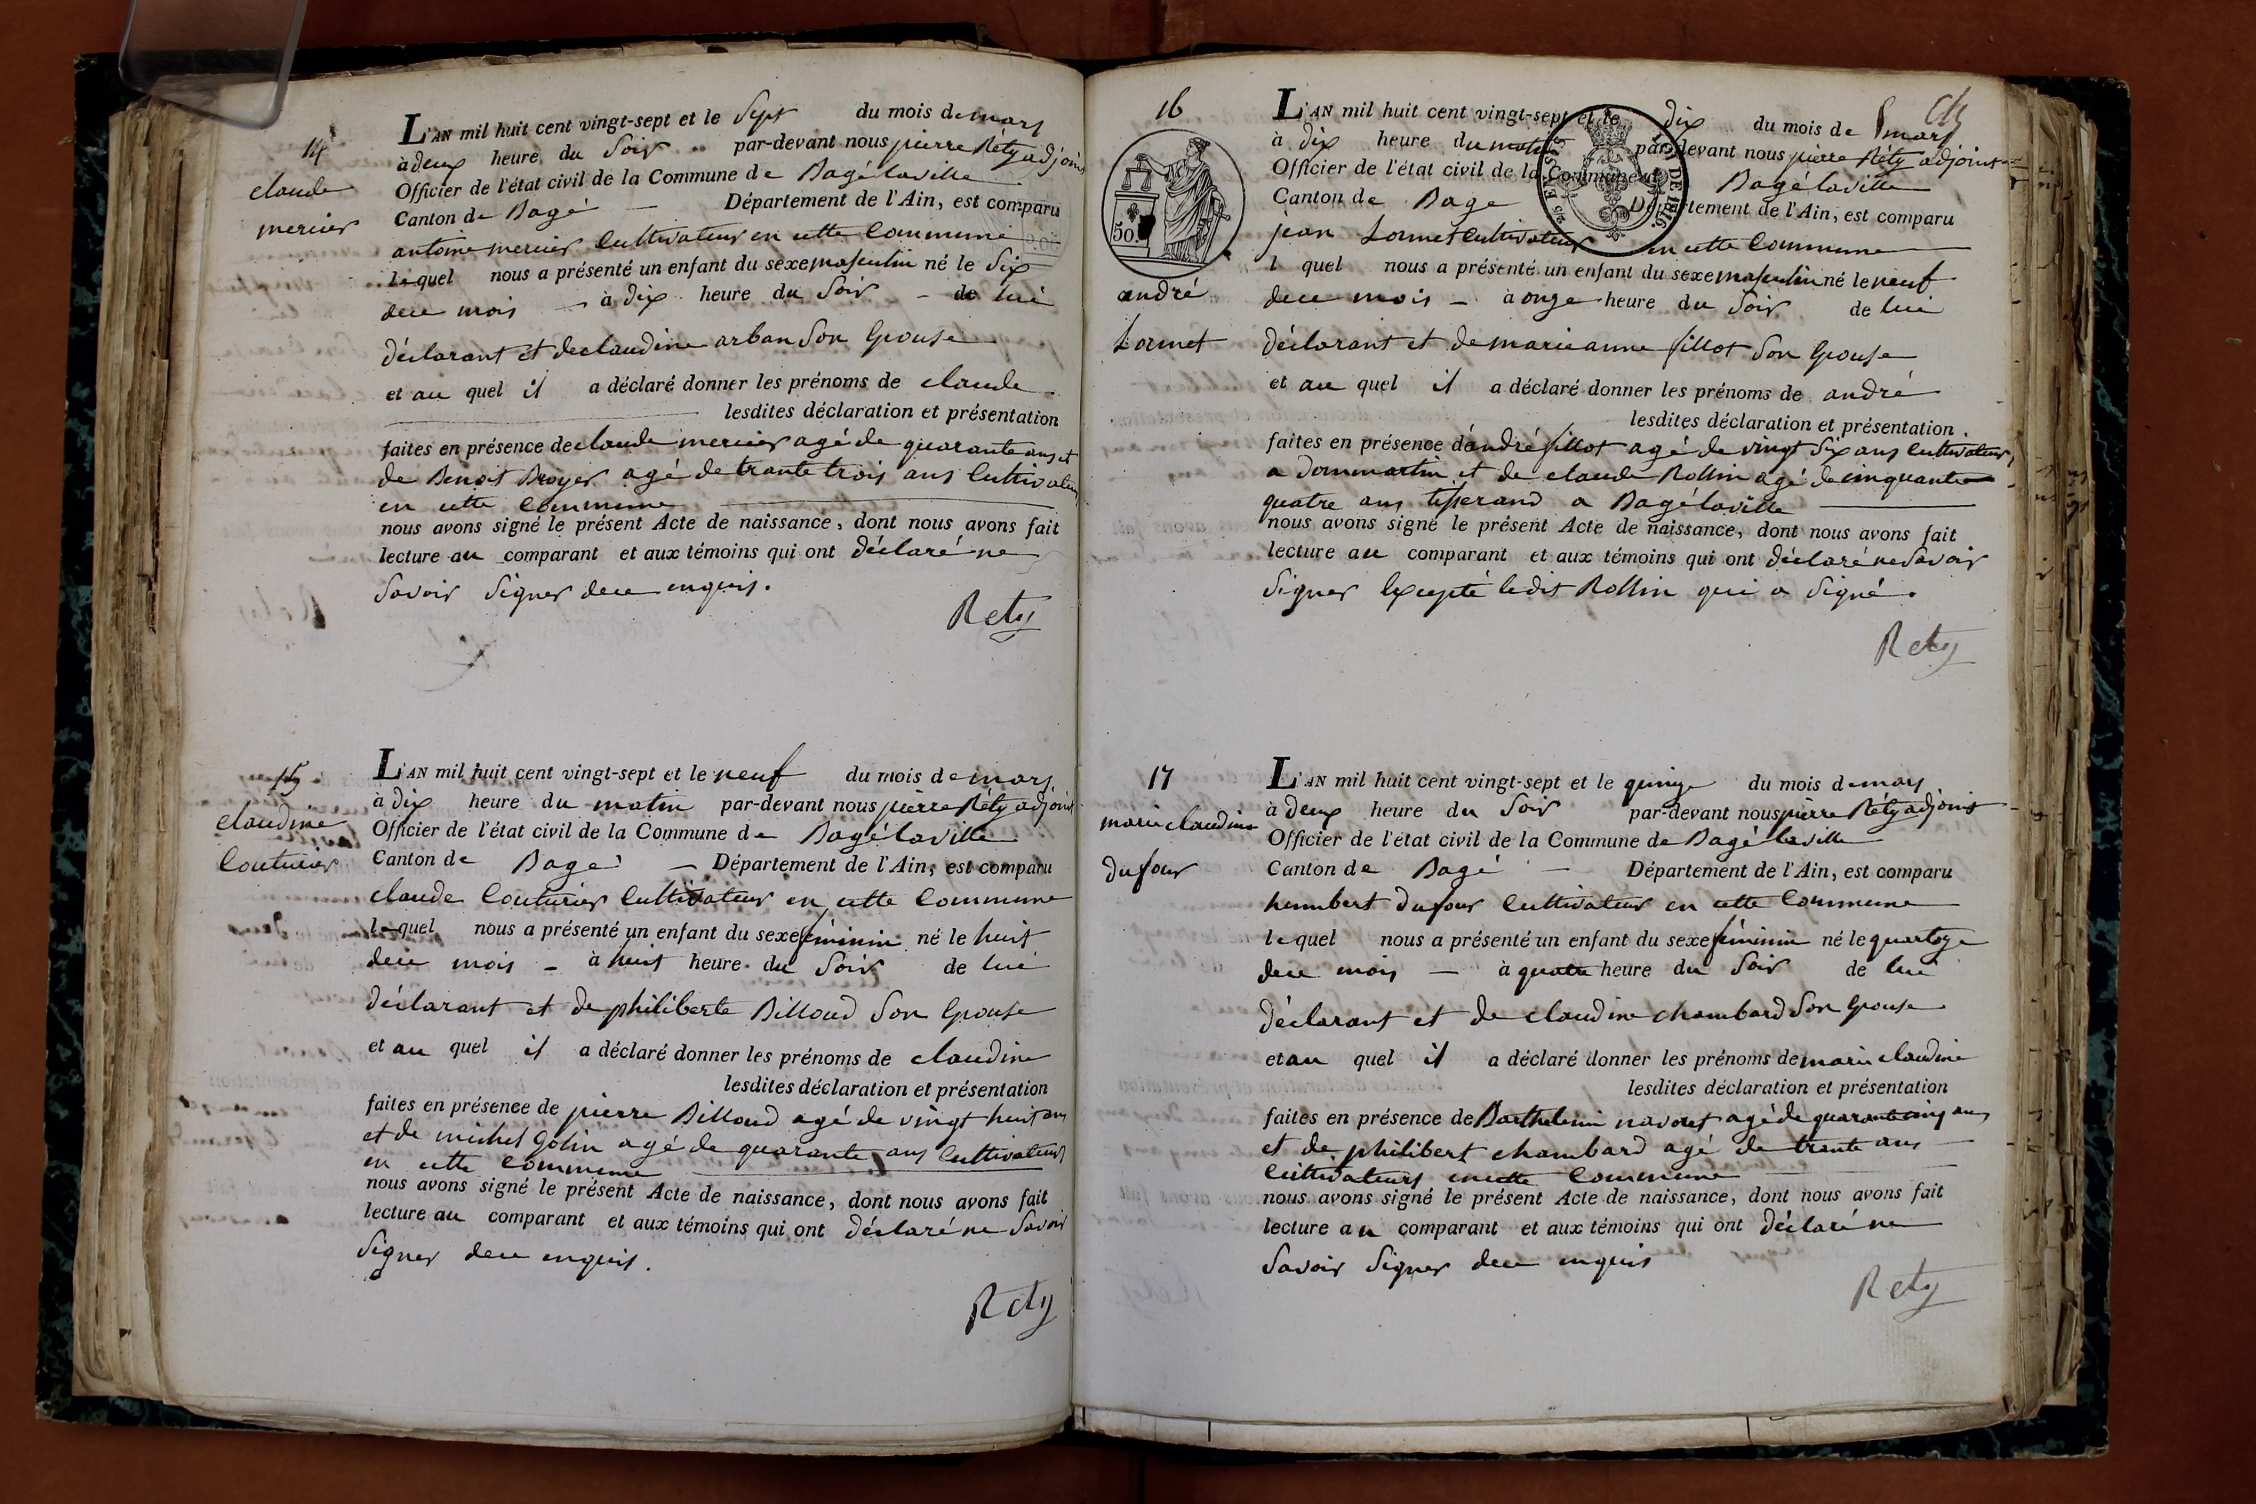 14
claude
mercier
L'AN mil huit cent vingt-sept et le Sept du mois de mars
à deux heure du Soir par-devant nous pierre Réty adjoint
Officier de l'état civil de la Commune de Bagélaville
Canton de Bagé Département de l'Ain, est comparu
antoine mercier Cultivateur en cette Commune
lequel nous a présenté un enfant du sexe masculin né le Six
de ce mois à dix heure du Soir de lui
déclarant et de claudine arban Son Epouse
et au quel il a déclaré donner les prénoms de claude
lesdites déclaration et présentation
faites en présence de claude mercier agé de quarante ans et
de Benoit Broyer agé de trante trois ans Cultivateurs
en cette Commune
nous avons signé le présent Acte de naissance, dont nous avons fait
lecture au comparant et aux témoins qui ont déclaré ne
Savoir Signer de ce enquis.
Rety
15
claudine
Couturier
L'AN mil huit cent vingt-sept et le neuf du mois de mars
à dix heure du matin par-devant nous pierre Réty adjoint
Officier de l'état civil de la Commune de Bagélaville
Canton de Bagé Département de l'Ain, est comparu
claude Couturier Cultivateur en cette Commune
lequel nous a présenté un enfant du sexe féminin né le huit
de ce mois à huit heure du Soir de lui
déclarant et de philiberte Billoud Son Epouse
et au quel il a déclaré donner les prénoms de claudine
lesdites déclaration et présentation
faites en présence de pierre Billoud agé de vingt huit ans
et de michel Golin agé de quarante ans Cultivateurs
en cette Commune
nous avons signé le présent Acte de naissance, dont nous avons fait
lecture au comparant et aux témoins qui ont déclaré ne Savoir
Signer de ce enquis.
Rety
16
50.
andré
Lormet
L'AN mil huit cent vingt-sept et le dix du mois de mars
à dix heure du matin par-devant nous pierre Réty adjoint
Officier de l'état civil de la Commune de Bagélaville
Canton de Bage Département de l'Ain, est comparu
jean Lormet Cultivateur en cette Commune
lequel nous a présenté un enfant du sexe masculin né le neuf
de ce mois à onze heure du Soir de lui
déclarant et de marie anne fillot Son Epouse
et au quel il a déclaré donner les prénoms de andré
lesdites déclaration et présentation
faites en présence d'andré fillot agé de vingt Six ans Cultivateur
a dommartin et de claude Rollin agé de cinquante
quatre ans tisserand a Bagélaville
nous avons signé le présent Acte de naissance, dont nous avons fait
lecture au comparant et aux témoins qui ont déclaré ne Savoir
Signer Excepté ledit Rollin qui a Signé.
Rety
17
marie claudine
dufour
L'AN mil huit cent vingt-sept et le quinze du mois de mars
à deux heure du Soir par-devant nous pierre Réty adjoint
Officier de l'état civil de la Commune de Bagélaville
Canton de Bagé Département de l'Ain, est comparu
humbert dufour Cultivateur en cette Commune
lequel nous a présenté un enfant du sexe féminin né le quartoze
de ce mois à quatre heure du Soir de lui
déclarant et de claudine chambard Son Epouse
et au quel il a déclaré donner les prénoms de marie claudine
lesdites déclaration et présentation
faites en présence de Barthelemi navoret agé de quarante cinq ans
et de philibert chambard agé de trante ans
Cultivateurs en cette Commune
nous avons signé le présent Acte de naissance, dont nous avons fait
lecture au comparant et aux témoins qui ont déclaré ne
Savoir Signer de ce enquis
Rety